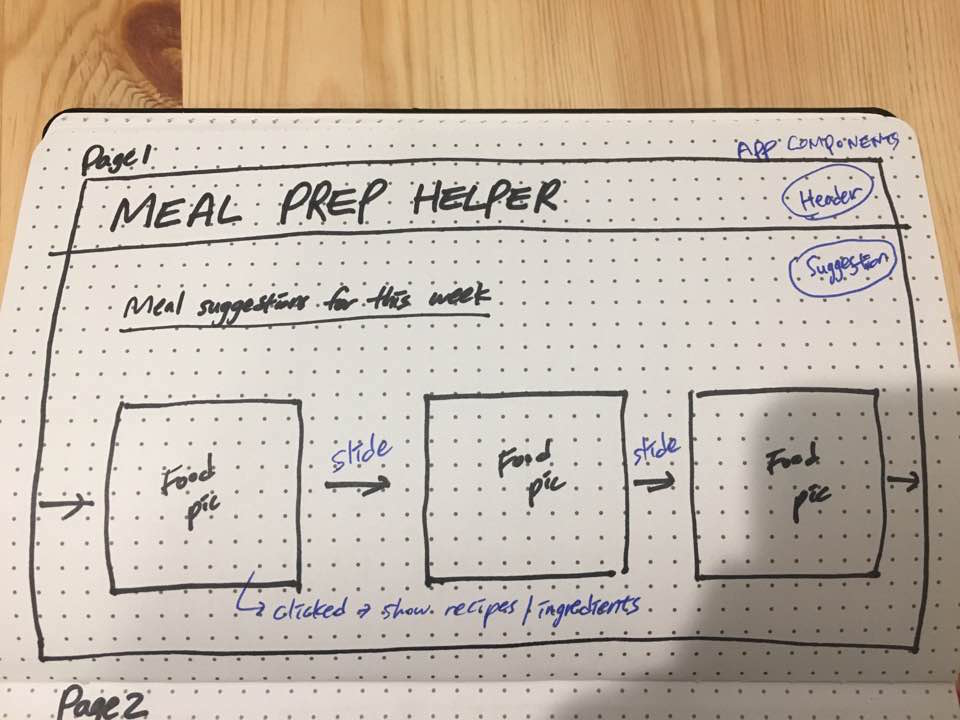 Page 1
APP COMPONENTS
MEAL PREP HELPER
Header
Suggestion
Meal suggestions for this week
Food
pic
slide
Food
pic
slide
Food
pic
clicked → show recipes / ingredients
Page 2